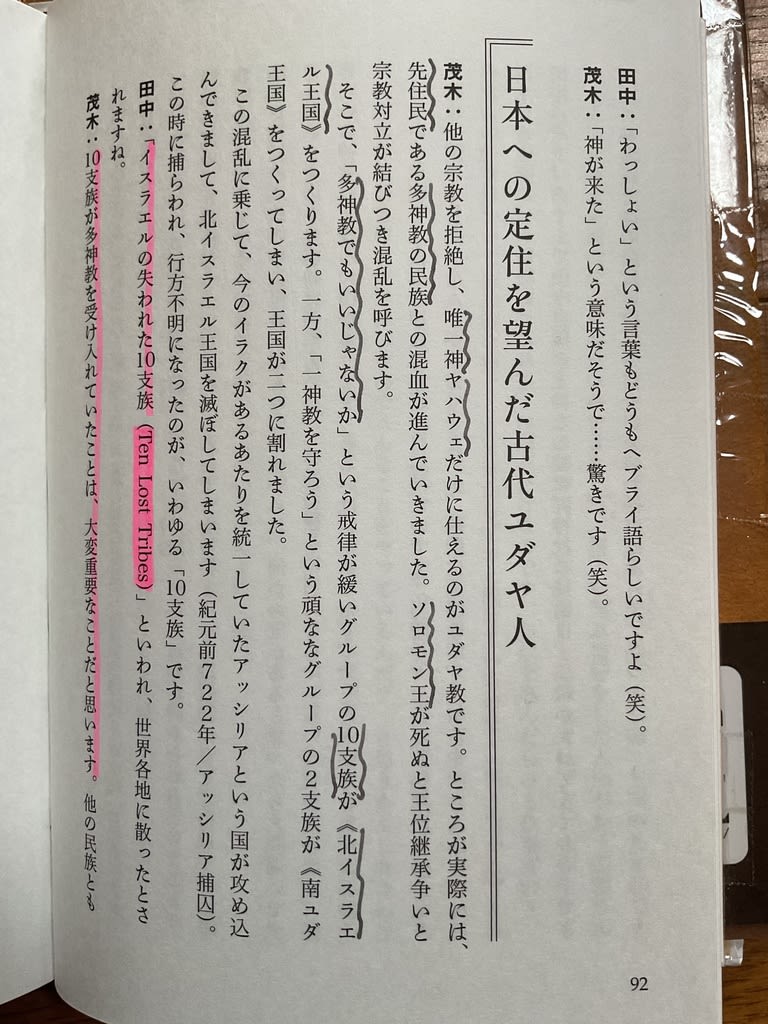 田中：「わっしょい」という言葉もどうもヘブライ語らしいですよ（笑）。
茂木：「神が来た」という意味だそうで……驚きです（笑）。
日本への定住を望んだ古代ユダヤ人
茂木：他の宗教を拒絶し、唯一神ヤハウェだけに仕えるのがユダヤ教です。ところが実際には、
先住民である多神教の民族との混血が進んでいきました。ソロモン王が死ぬと王位継承争いと
宗教対立が結びつき混乱を呼びます。
そこで、「多神教でもいいじゃないか」という戒律が緩いグループの10支族が《北イスラエ
ル王国》をつくります。一方、「一神教を守ろう」という頑ななグループの2支族が《南ユダ
王国》をつくってしまい、王国が二つに割れました。
この混乱に乗じて、今のイラクがあるあたりを統一していたアッシリアという国が攻め込
んできまして、北イスラエル王国を滅ぼしてしまいます（紀元前722年／アッシリア捕囚）。
この時に捕らわれ、行方不明になったのが、いわゆる「10支族」です。
田中：「イスラエルの失われた10支族（Ten Lost Tribes）」といわれ、世界各地に散ったとさ
れますね。
茂木：10支族が多神教を受け入れていたことは、大変重要なことだと思います。他の民族とも
92